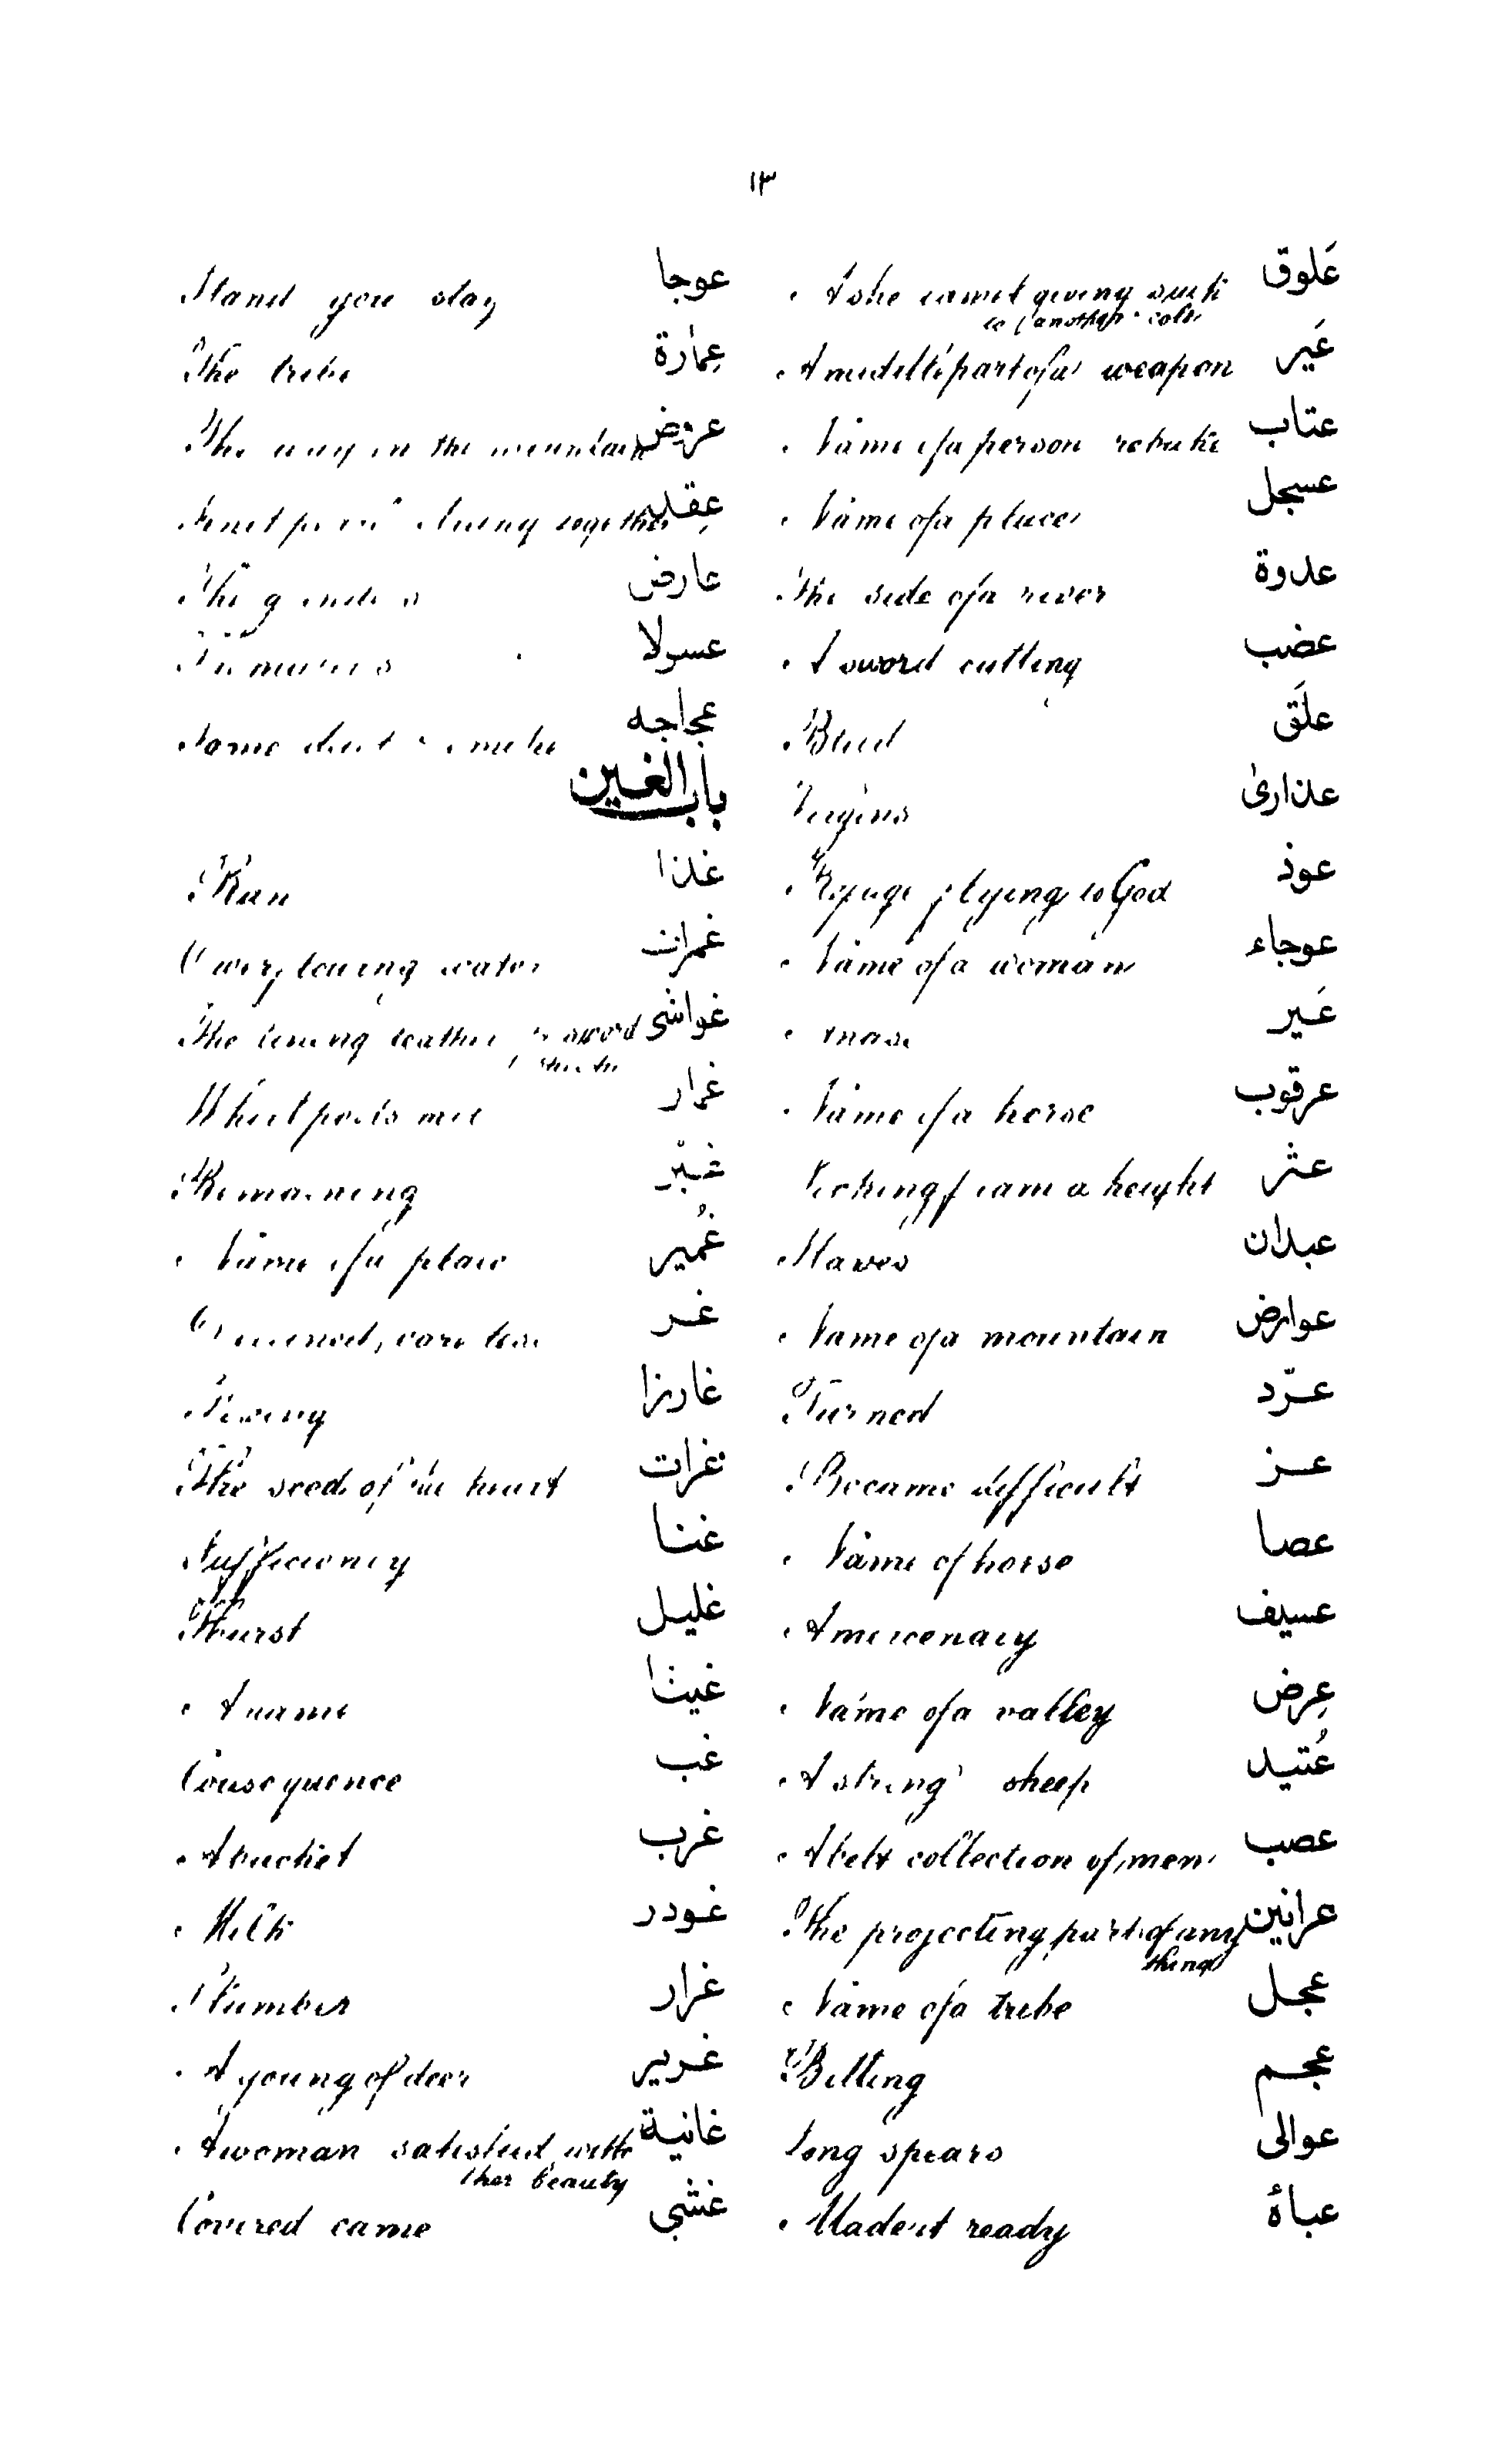 ١٣
عَلوق A she camel giving suck
to another colt
عَير A middle part of a weapon
عتاب Name of a person rebuke
عسجل Name of a place
عدوة The side of a river
عضب A sword cutting
علَق Blud
عذارىٰ Virgins
عوذ Refuge flying to God
عوجاء Name of a woman
عَير
عرقوب Name of a horse
عثر from a height
عبدان Slaves
عوارض Name of a mountain
عرّد Turned
عز Became difficult
عصا Name of horse
عسيف A mercenary
عِرض Name of a valley
عُتيد A strong sheep
عصب A belt collection of men
عرانين The projecting part of any
thing
عجل Name of a tribe
عجم Bitting
عوالى Long spears
عباهٔ Made it ready
عوجا Stand you stay
عِمارة The tribe
عروض The way in the mountain
together
عارض The
عسولا
عجاجه Some dust smoke
باب الغين
غذا Ran
غمرات Overflowing water
غواشى The lining leather sword
غرار What parts met
غبّر Remaining
غُمير Name of a place
غر
غارزا
غرات The seeds of the heart
غنا Sufficiency
غليل Thurst
غينا A name
غب Consequence
غرب A bucket
غودر Milk
غرار Slumber
غرير A young of deer
غانية A woman satisfied with
her beauty
غشى Covered came